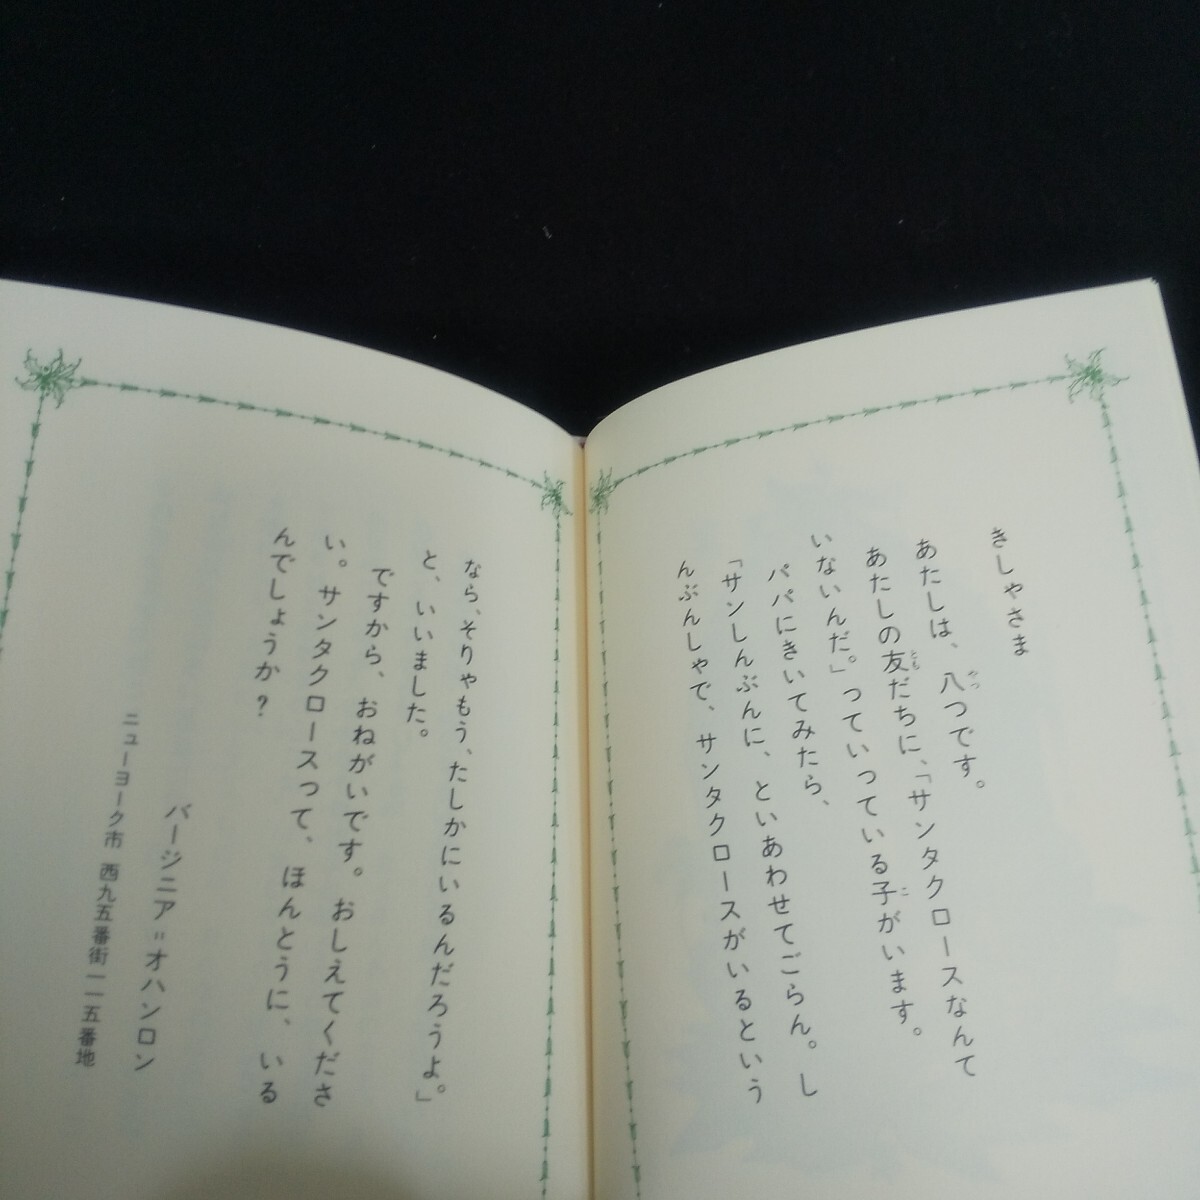 きしゃさま
あたしは、八つです。
あたしの友だちに、「サンタクロースなんて
いないんだ。」っていっている子がいます。
パパにきいてみたら、
「サンしんぶんに、といあわせてごらん。し
んぶんしゃで、サンタクロースがいるという
なら、そりゃもう、たしかにいるんだろうよ。」
と、いいました。
ですから、おねがいです。おしえてくださ
い。サンタクロースって、ほんとうに、いる
んでしょうか?
バージニア=オハンロン
ニューヨーク市 西九五番街一一五番地